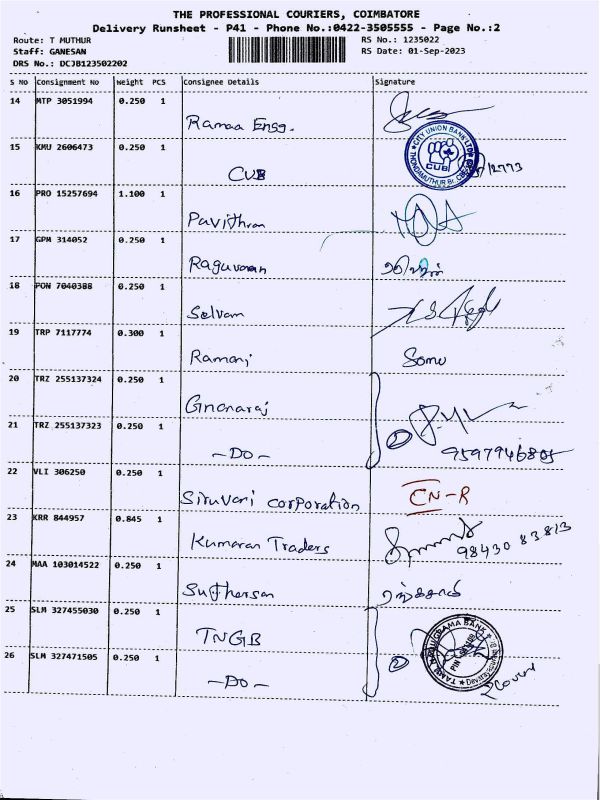 THE PROFESSIONAL COURIERS, COIMBATORE
Delivery Runsheet - P41 - Phone No.:0422-3505555 - Page No.:2
Route: T MUTHUR RS No.: 1235022
Staff: GANESAN RS Date: 01-Sep-2023
DRS No.: DCJB123502202
S No Consignment No Weight PCS Consignee Details Signature
14 MTP 3051994 0.250 1
Ramaa Engg.
15 KMU 2606473 0.250 1
CITY UNION BANK LTD
THONDAMUTHUR Br.
CUB
CUB
16 PRO 15257694 1.100 1
Pavithran
17 GPM 314052 0.250 1
Raguvaran
18 PON 7040388 0.250 1
Selvam
19 TRP 7117774 0.300 1
Ramanj Somu
20 TRZ 255137324 0.250 1
Gnanaraj
21 TRZ 255137323 0.250 1
2
-DO- 9597946805
22 VLI 306250 0.250 1
Siruvani corporation CN-R
23 KRR 844957 0.845 1
Kumaran Traders 98430 83813
24 MAA 103014522 0.250 1
Suthersan
25 SLM 327455030 0.250 1
TNGB
TAMIL NADU GRAMA BANK
2
26 SLM 327471505 0.250 1
-DO-